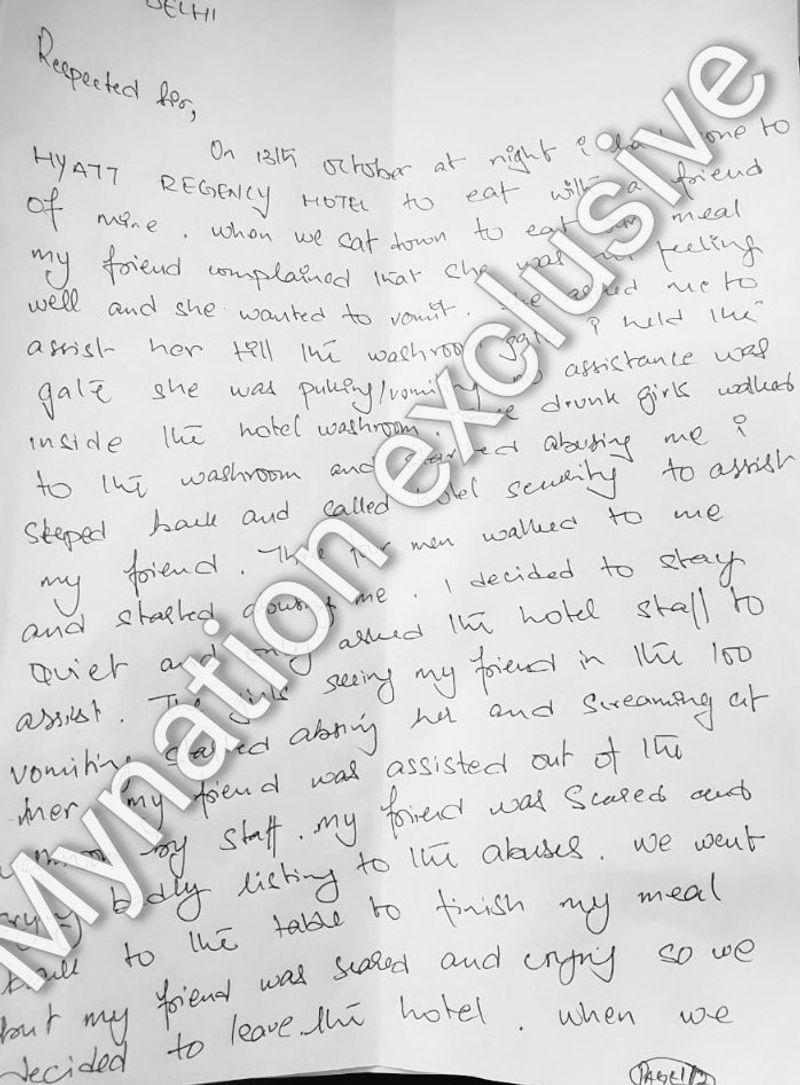 DELHI
Respected Sir,
On 13th october at night i had gone to
HYATT REGENCY HOTEL to eat with a friend
of mine. when we sat down to eat our meal
my friend complained that she was not feeling
well and she wanted to vomit. She asked me to
assist her till the washroom gate i held the
gate she was puking/vomiting no assistance was
inside the hotel washroom. drunk girls walked
to the washroom and started abusing me i
steped back and called hotel security to assist
my friend. men walked to me
and started abusing me. I decided to stay
Quiet and only asked the hotel staff to
assist. The girls seeing my friend in the loo
vomiting started abusing her and screaming at
her. My friend was assisted out of the
by staff. my friend was scared and
crying badly listing to the abuses. we went
back to the table to finish my meal
but my friend was scared and crying so we
decided to leave the hotel. when we
PAGE 1/2
Mynation exclusive